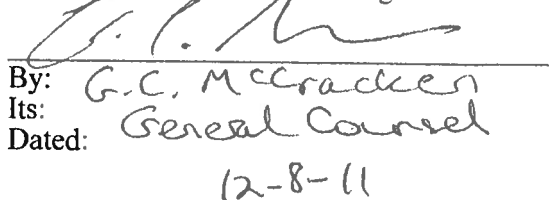 By: G.C. McCracken
Its: General Counsel
Dated:
12-8-11